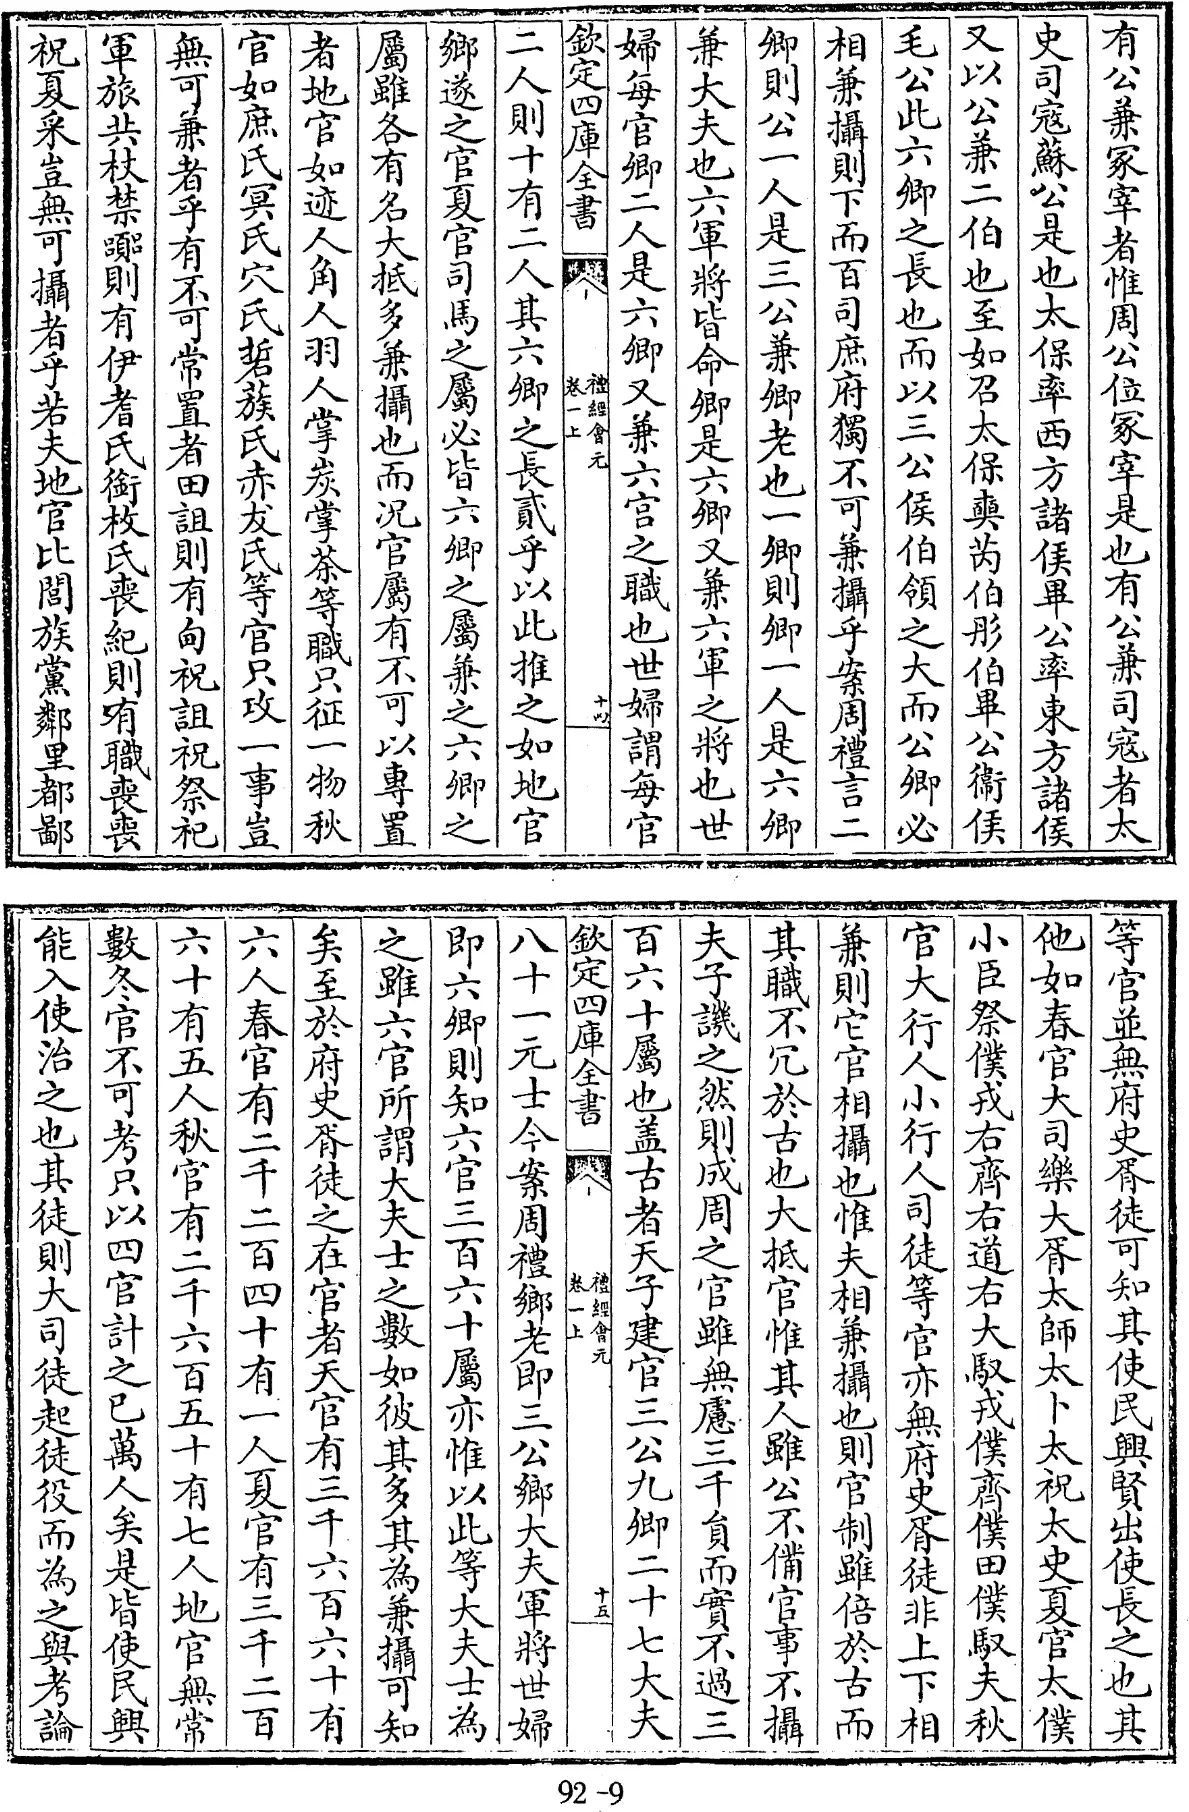 有公兼冢宰者惟周公位冢宰是也有公兼司寇者太
史司寇蘇公是也太保率西方諸侯畢公率東方諸侯
又以公兼二伯也至如召太保奭芮伯彤伯畢公衞侯
毛公此六卿之長也而以三公侯伯領之大而公卿必
相兼攝則下而百司庶府獨不可兼攝乎案周禮言二
鄉則公一人是三公兼鄉老也一鄉則卿一人是六卿
兼大夫也六軍將皆命卿是六卿又兼六軍之將也世
婦每官卿二人是六卿又兼六宫之職也世婦謂每官
欽定四庫全書
禮經會元
卷一上
十四
二人則十有二人其六卿之長貳乎以此推之如地官
鄉遂之官夏官司馬之屬必皆六卿之屬兼之六卿之
屬雖各有名大抵多兼攝也而况官屬有不可以專置
者地官如迹人角人羽人掌炭掌荼等職只征一物秋
官如庶氏冥氏穴氏硩蔟氏赤犮氏等官只攻一事豈
無可兼者乎有不可常置者田詛則有甸祝詛祝祭祀
軍旅共杖禁嘂則有伊耆氏銜枚氏喪紀則有職喪喪
祝夏采豈無可攝者乎若夫地官比閭族黨鄰里都鄙
等官並無府史胥徒可知其使民興賢出使長之也其
他如春官大司樂大胥太師太卜太祝太史夏官太僕
小臣祭僕戎右齊右道右大馭戎僕齊僕田僕馭夫秋
官大行人小行人司徒等官亦無府史胥徒非上下相
兼則它官相攝也惟夫相兼攝也則官制雖倍於古而
其職不冗於古也大抵官惟其人雖公不備官事不攝
夫子譏之然則成周之官雖無慮三千員而實不過三
百六十屬也盖古者天子建官三公九卿二十七大夫
欽定四庫全書
禮經會元
卷一上
十五
八十一元士今案周禮鄉老即三公鄉大夫軍將世婦
即六卿則知六官三百六十屬亦惟以此等大夫士為
之雖六官所謂大夫士之數如彼其多其為兼攝可知
矣至於府史胥徒之在官者天官有三千六百六十有
六人春官有二千二百四十有一人夏官有三千二百
六十有五人秋官有二千六百五十有七人地官無常
數冬官不可考只以四官計之已萬人矣是皆使民興
能入使治之也其徒則大司徒起徒役而為之與考論
92-9